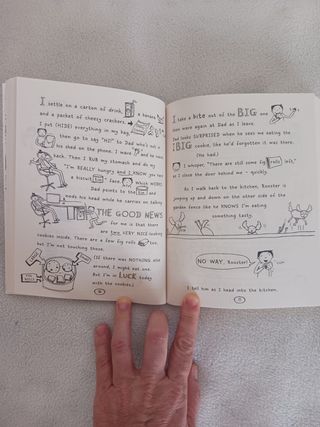 I settle on a carton of drink, a banana
and a packet of cheesy crackers.
I put (HIDE) everything in my bag,
then go to say "HI!" to Dad who's out in
his shed on the phone. I wave and he waves
back. Then I RUB my stomach and do my
"I'm REALLY hungry and I KNOW you have
a biscuit tin" face. Which WORKS.
Dad points to the tin and
nods his head while he carries on talking.
THE GOOD NEWS
for me is that there
are two VERY NICE looking
cookies inside. There are a few fig rolls too,
but I'm not touching those.
(If there was NOTHING else
around, I might eat one.
But I'm in LUCK today
with the cookies.)
I take a bite out of the BIG one
then wave again at Dad as I leave.
Dad looks SURPRISED when he sees me eating the
BIG cookie, like he'd forgotten it was there.
(He had.)
I whisper, "There are still some fig rolls left,"
as I close the door behind me - quickly.
As I walk back to the kitchen, Rooster is
jumping up and down on the other side of the
garden fence like he KNOWS I'm eating
something tasty.
NO WAY, Rooster!
I tell him as I head into the kitchen.